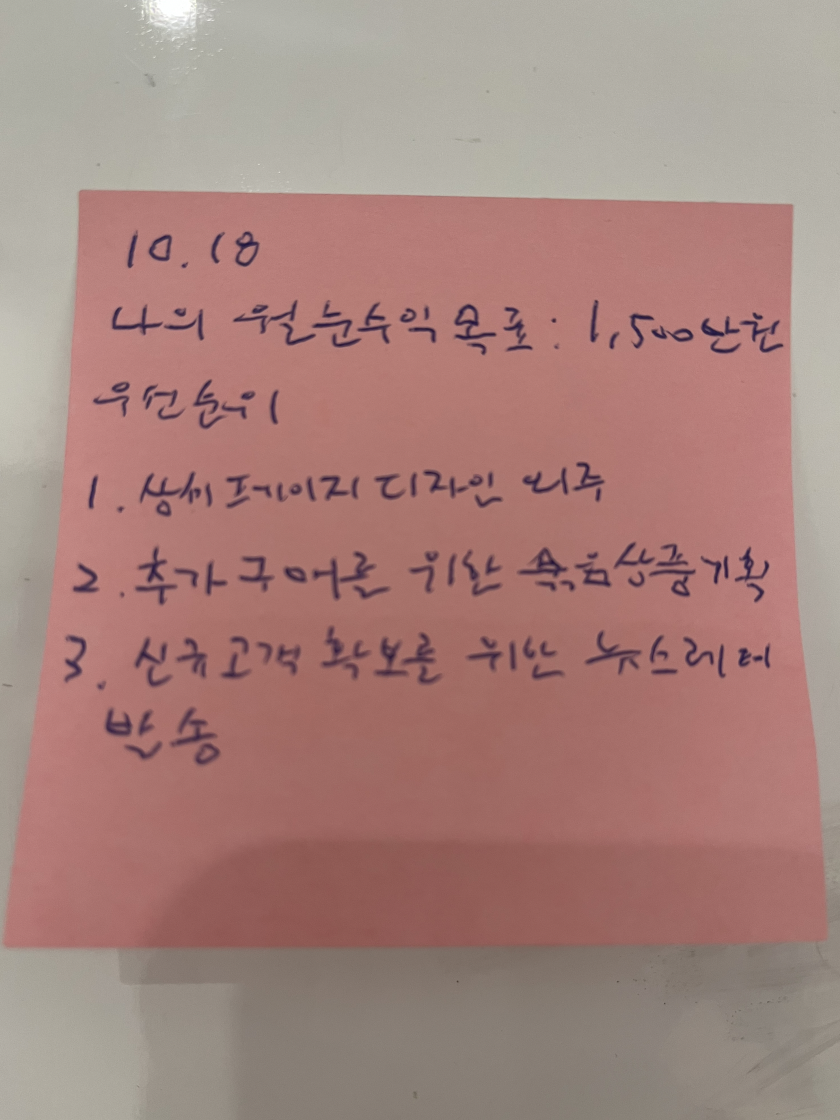 10.18
나의 월순수익 목표: 1,500만원
우선순위
1. 상세페이지 디자인 외주
2. 추가구매를 위한 묶음상품기획
3. 신규고객 확보를 위한 뉴스레터
발송